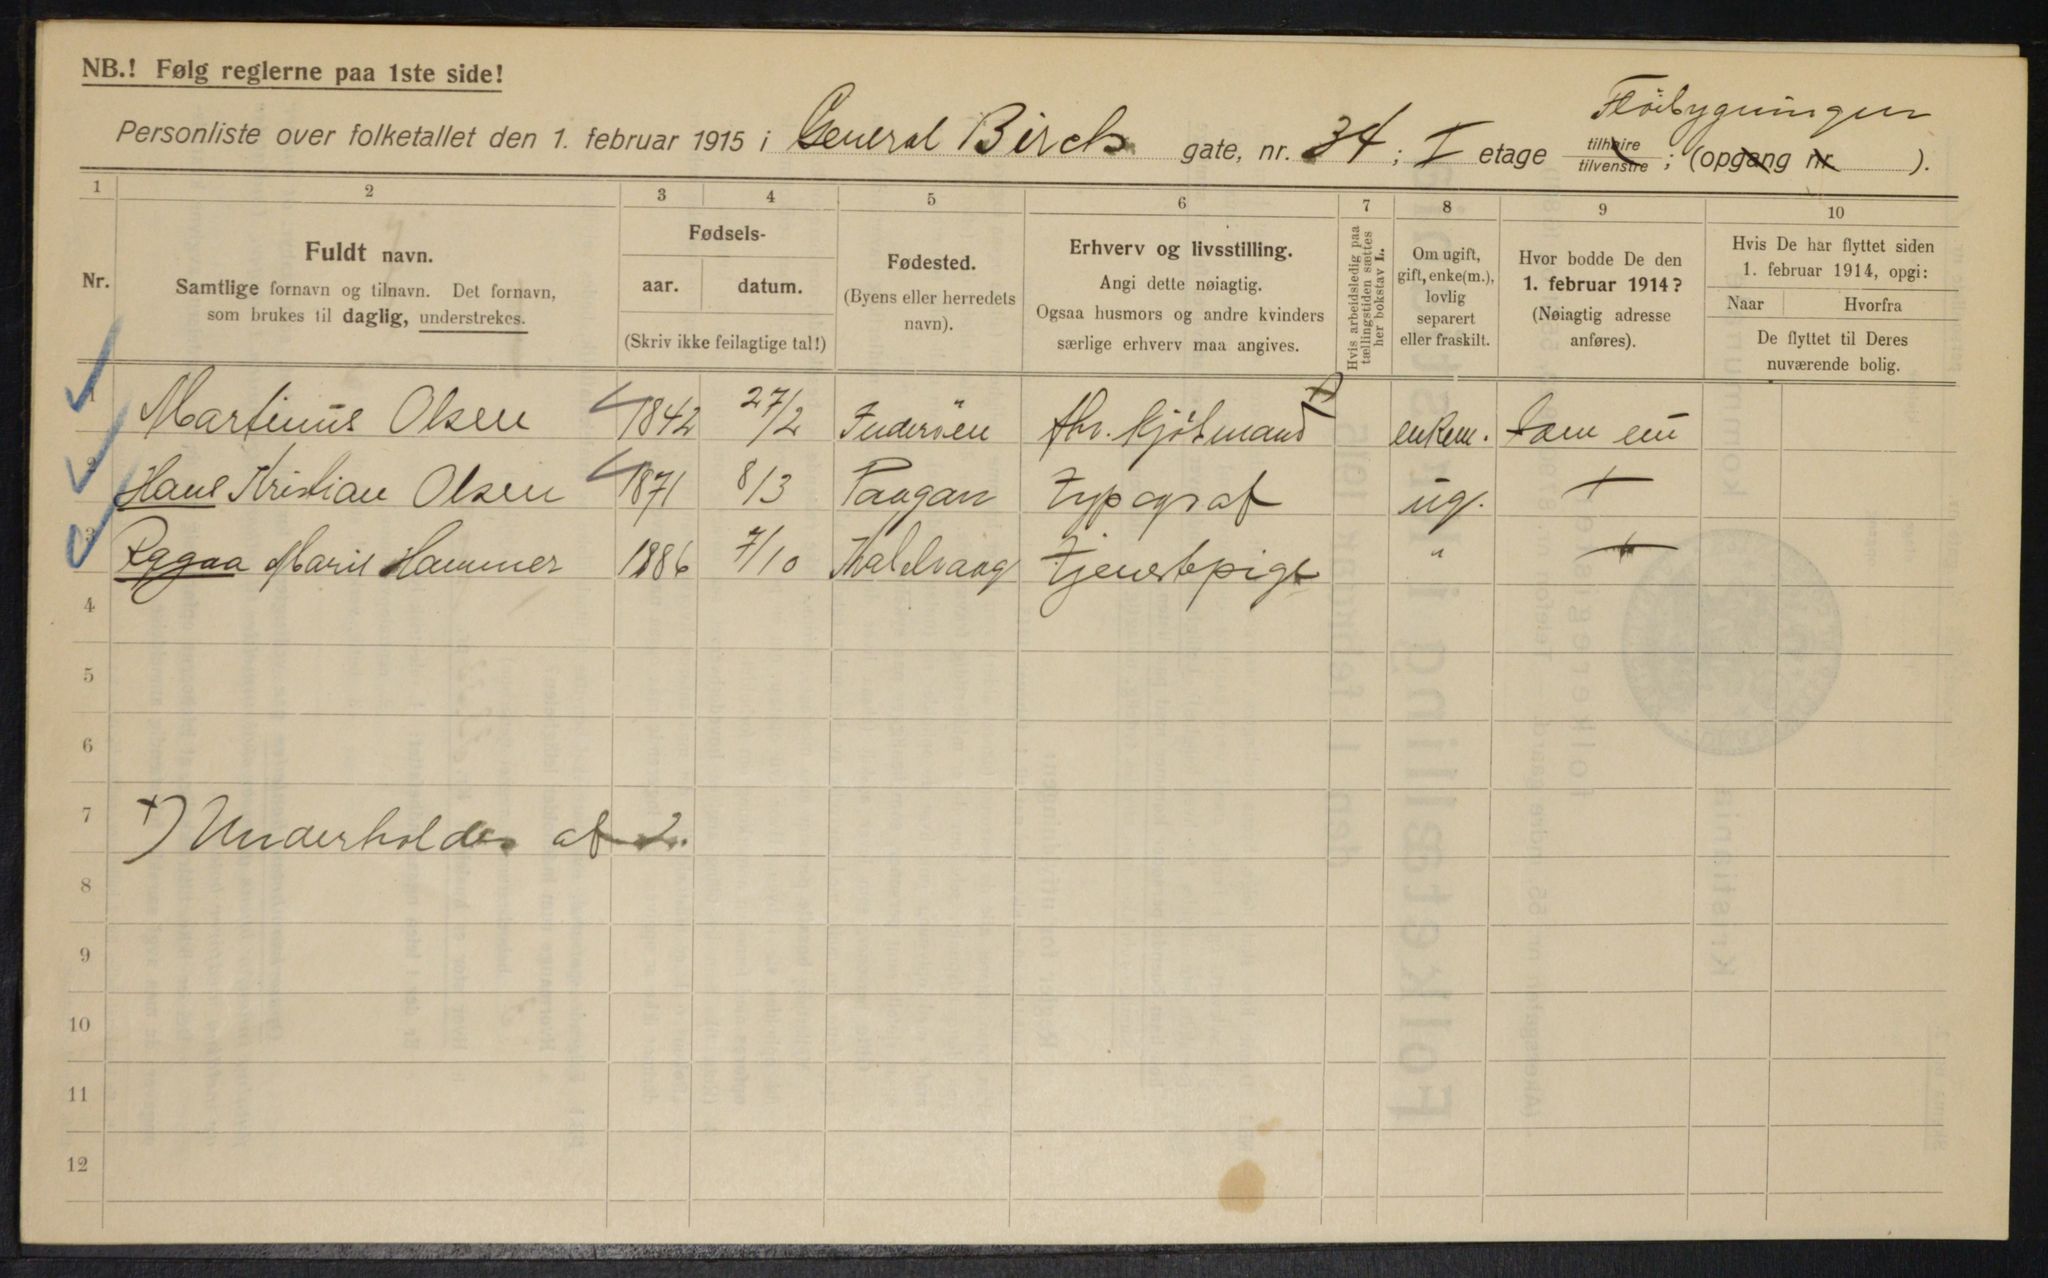 NB.! Følg reglerne paa 1ste side!
Personliste over folketallet den 1. februar 1915 i General Birch gate, nr. 34; I etage tilhøire tilvenstre; (opgang nr. ).
Fløibygningen
1 2 3 4 5 6 7 8 9 10
Nr.
Fuldt navn.
Samtlige fornavn og tilnavn. Det fornavn,
som brukes til daglig, understrekes.
Fødsels-
aar. datum.
(Skriv ikke feilagtige tal!)
Fødested.
(Byens eller herredets
navn).
Erhverv og livsstilling.
Angi dette nøiagtig.
Ogsaa husmors og andre kvinders
særlige erhverv maa angives.
Hvis arbeidsledig paa
tællingstiden sættes
her bokstav L.
Om ugift,
gift, enke(m.),
lovlig
separert
eller fraskilt.
Hvor bodde De den
1. februar 1914?
(Nøiagtig adresse
anføres).
Hvis De har flyttet siden
1. februar 1914, opgi:
Naar Hvorfra
De flyttet til Deres
nuværende bolig.
1 Martinus Olsen 1842 27/2 Inderöen fhv. kjøbmand +) enkem. som nu
2 Hans Kristian Olsen 1871 8/3 typograf ug. +
3 Marie Hammer 1886 7/10 Tjenestepige " +
4
5
6
7 +) Underholdes af 2.
8
9
10
11
12